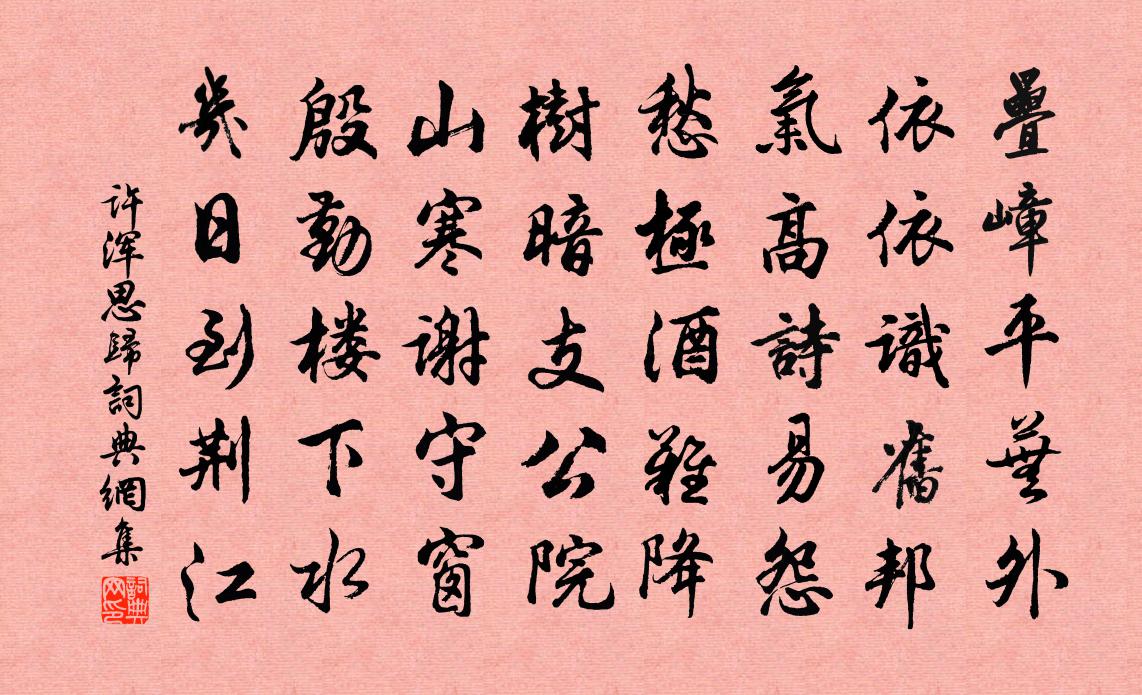 疊嶂平蕪外
依依識舊邦
氣高詩易怨
愁極酒難降
樹暗支公院
山寒謝守窗
殷勤楼下水
幾日到荆江
许浑思歸詞典網集
詞典网印